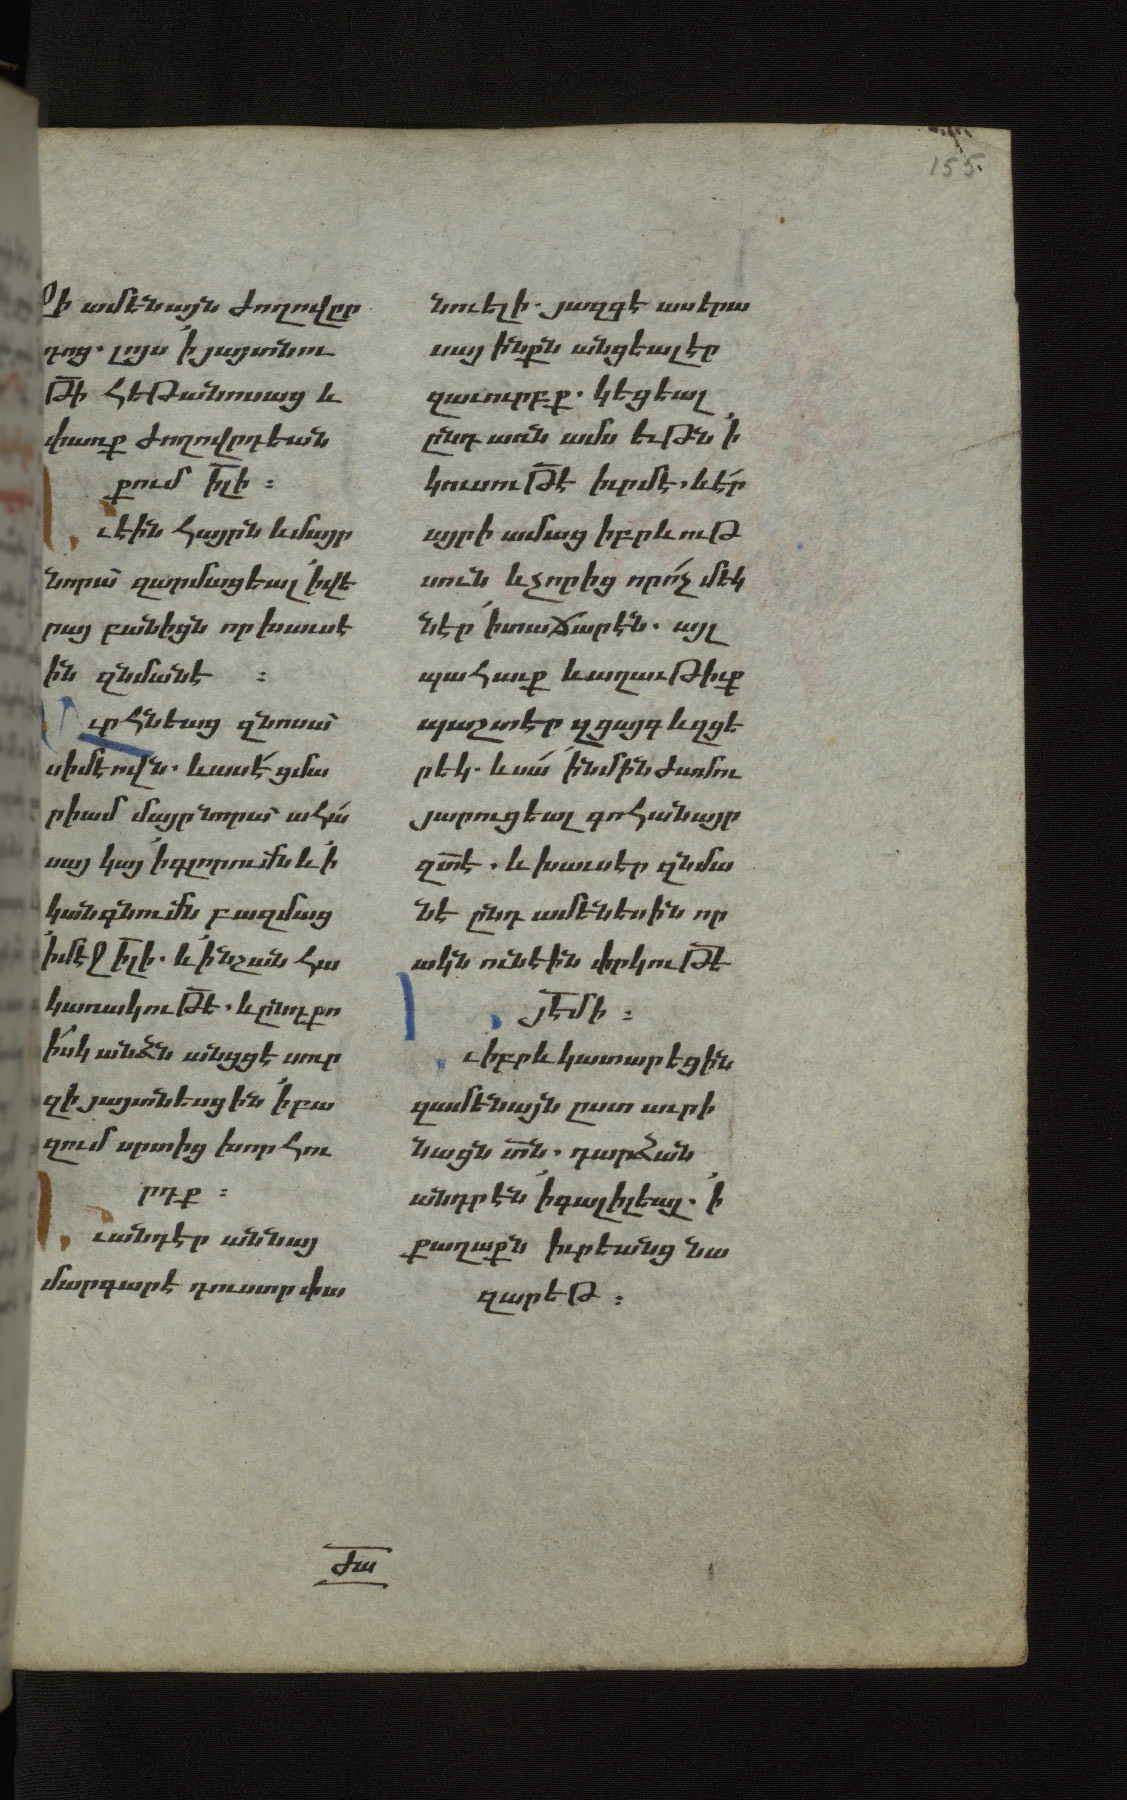 155.
ջի ամենայն ժողովըր
դոց. լոյս ՛ի յայտնու
թի հեթանոսաց և
փառք ժողովըրդեան
քում ի̅լի :
ւէին հայրն և մայր
նորա զարմացեալ ՛ի վե
րայ բանիցն որ խաւսե
ին զնմանէ :
ւրհնեաց զնոսա
սիմէովն. և ասէ ցմա
րիամ մայր նորա ահա
սայ կայ ՛ի գլորումն և ՛ի
կանգնումն բազմաց
՛ի մէջ ի̅լի. և ՛ի նշան հա
կառակութէ. և ընդ քո
իսկ անձն անցցէ սուր
զի յայտնեսցին ՛ի բա
զում սրտից խորհու
րդք :
ւանդէր աննայ
մարգարէ դուստր փա
նուելի. յազգէ ասերա
սայ ինքն անցեալ էր
զաւուրբք. կեցեալ
ընդ առն ամս եւթն ՛ի
կուսութէ իւրմէ. և էր
այրի ամաց իբրև ութ
սուն և չորից որ ոչ մեկ
նէր ՛ի տաճարէն. այլ
պահաւք և աղաւթիւք
պաշտէր զցայգ և զցե
րեկ. և սա ՛ի նմին ժամու
յարուցեալ գոհանայր
զտ̅է. և խաւսէր զնմա
նէ ընդ ամենեսին որ
ակն ունէին փրկութէ
յե̅մի :
ւիբրև կատարեցին
զամենայն ըստ աւրի
նացն տ̅ն. դարձան
անդրէն ՛ի գալիլեայ. ՛ի
քաղաքն իւրեանց նա
զարեթ :
ժա